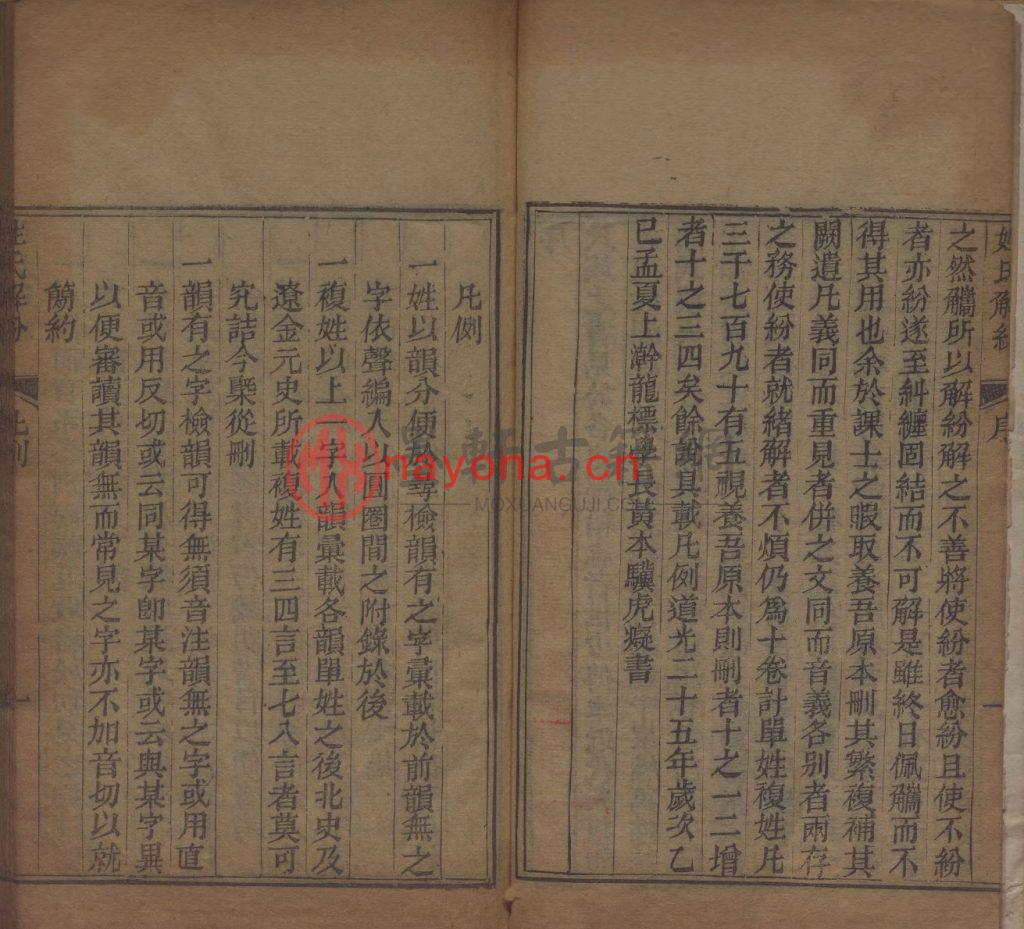 姓氏解紛
序
一
之然觿所以解紛解之不善將使紛者愈紛且使不紛
者亦紛遂至糾纏固結而不可解是雖終日佩觿而不
得其用也余於課士之暇取養吾原本刪其繁複補其
闕遺凡義同而重見者併之文同而音義各別者兩存
之務使紛者就緒解者不煩仍爲十卷計單姓複姓凡
三千七百九十有五視養吾原本則刪者十之一二增
者十之三四矣餘說具載凡例道光二十五年歲次乙
巳孟夏上澣龍標學長黃本驥虎癡書
凡例
一姓以韻分便於尋檢韻有之字彙載於前韻無之
字依聲編入以圓圈間之附錄於後
一複姓以上一字入韻彙載各韻單姓之後北史及
遼金元史所載複姓有三四言至七八言者莫可
究詰今槩從刪
一韻有之字檢韻可得無須音注韻無之字或用直
音或用反切或云同某字卽某字或云與某字異
以便審讀其韻無而常見之字亦不加音切以就
簡約
姓氏解紛
凡例
一
nayona.cn
軒古籍
MOXUANGUJI.COM